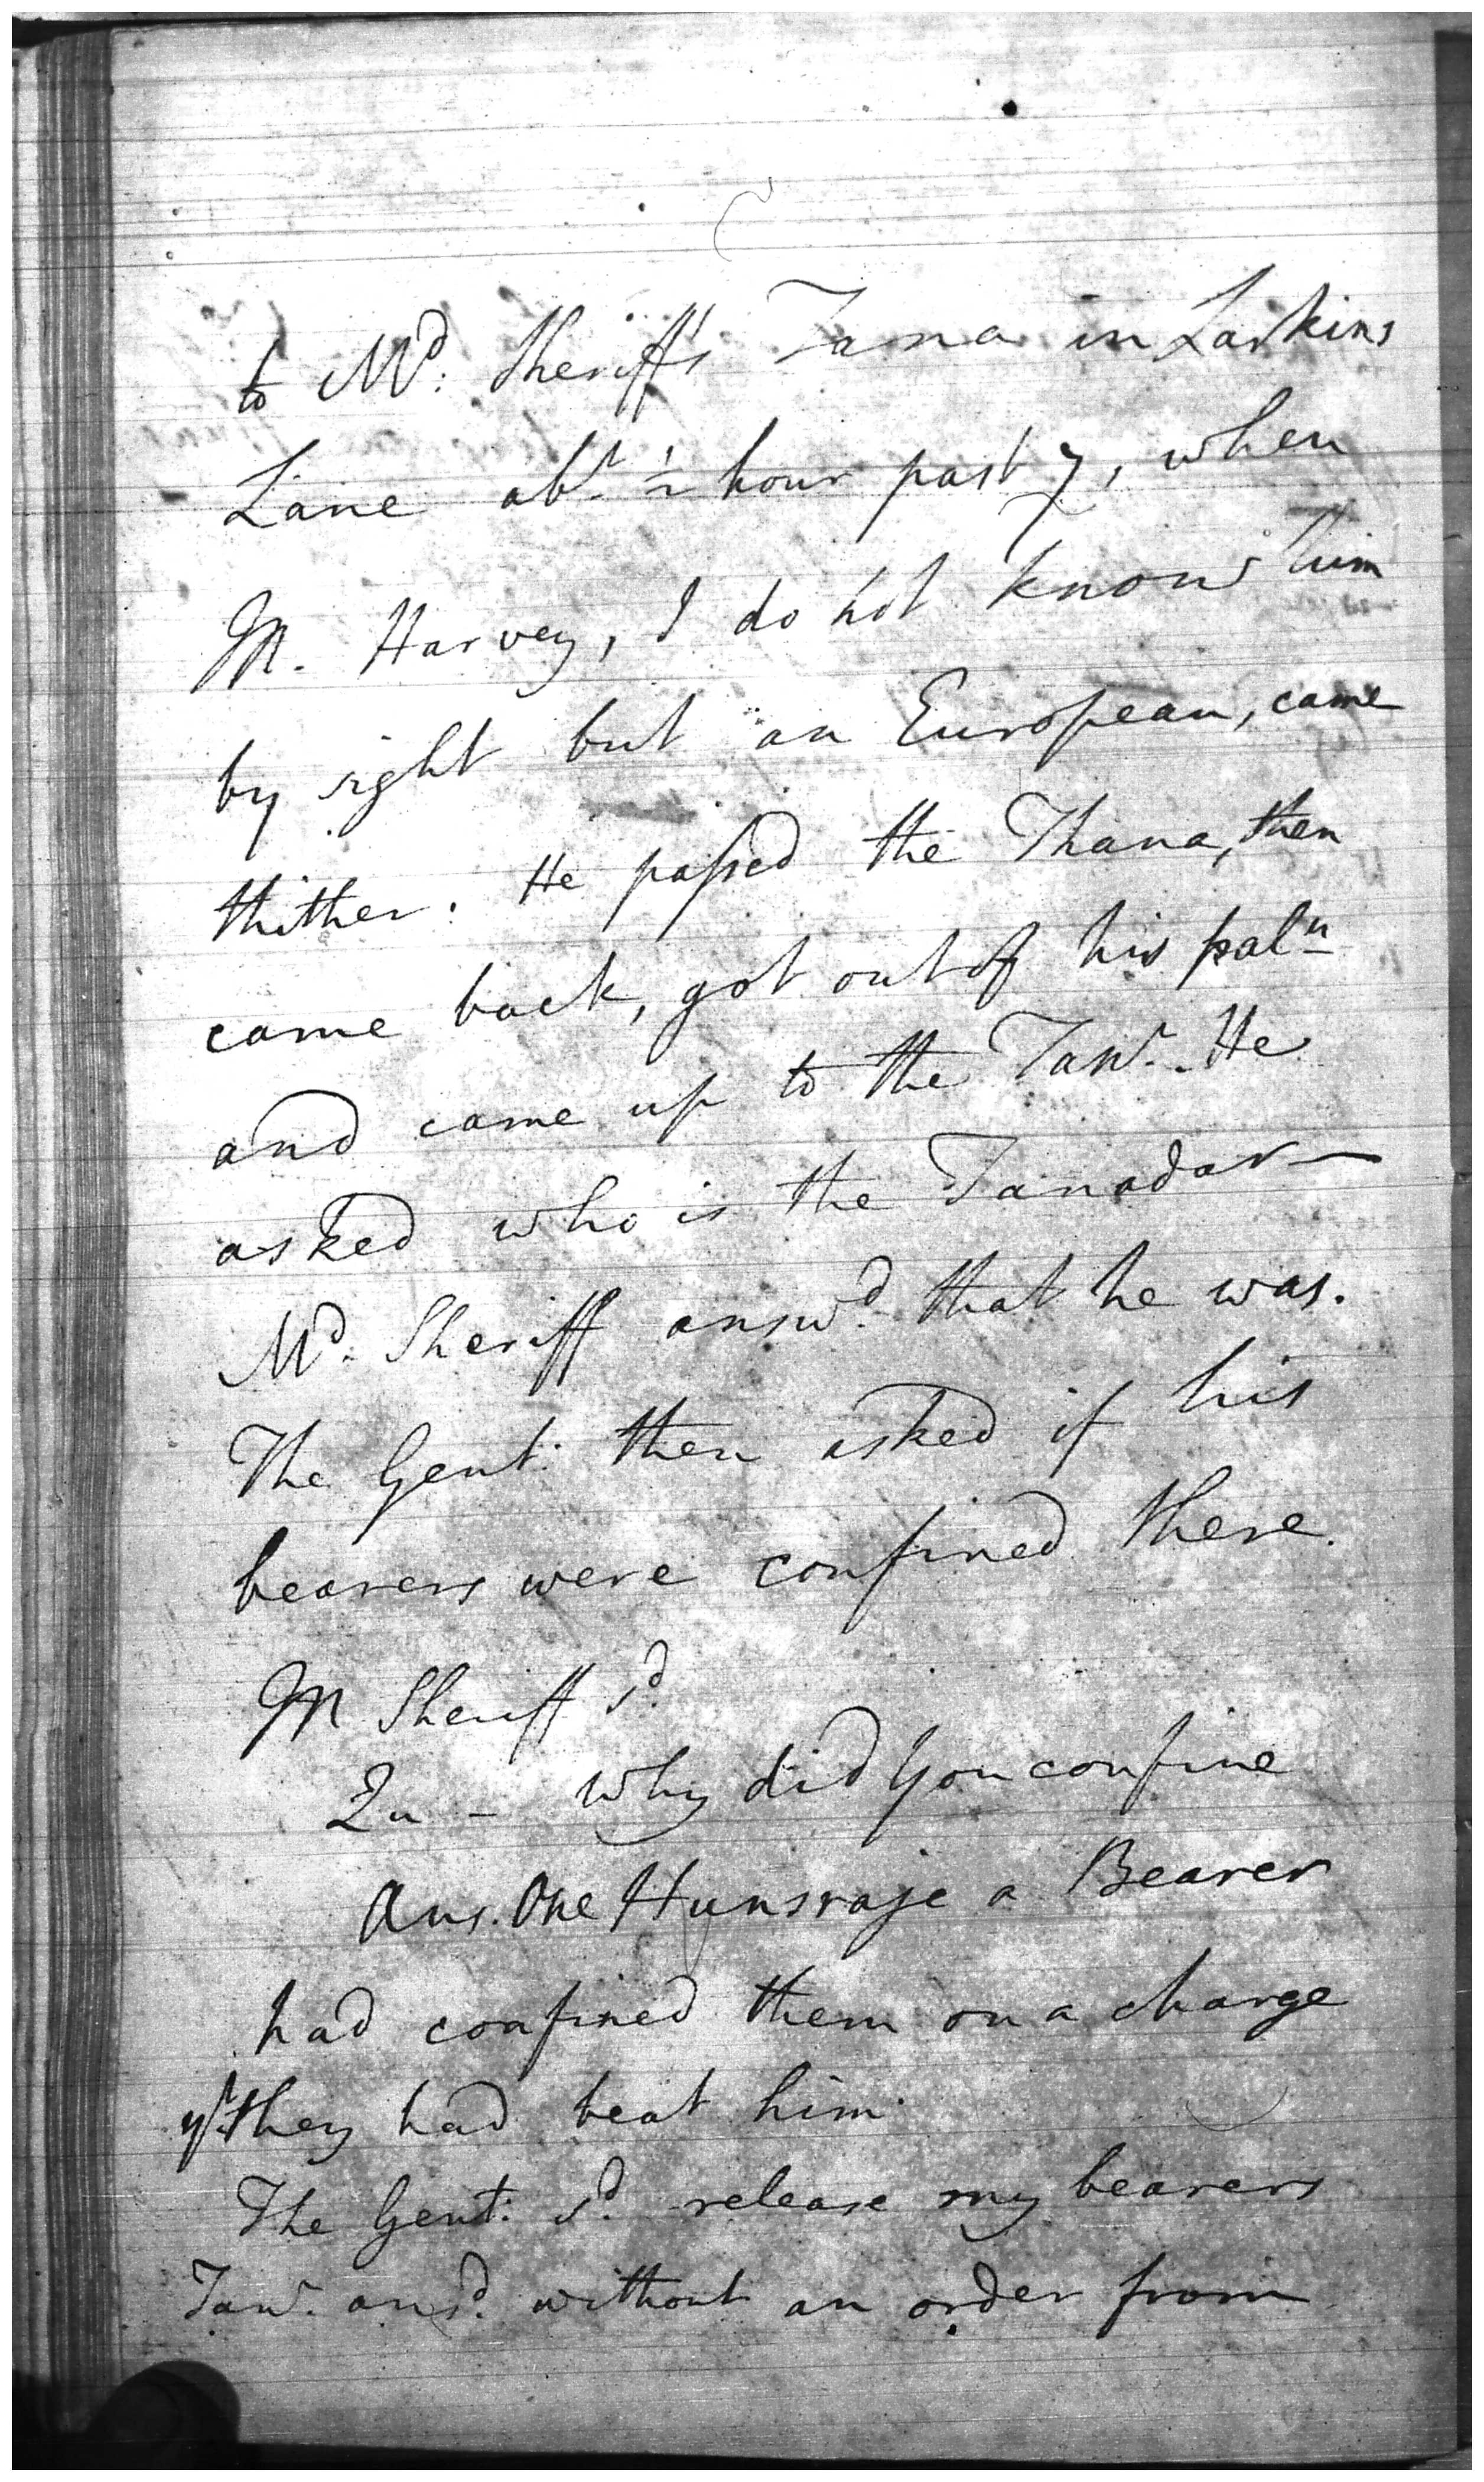 to Md: Sheriff's Tana in Larkins
Lane abt. ½ hour past 7, when
M. Harvey, I do not know him
by sight but an European, came
thither. He passed the Thana, then
came back, got out of his paln
and came up to the Tanr. He
asked who is the Tanadar —
Md. Sheriff answd. that he was.
The Gent: then asked if his
bearers were confined there.
M Sheriff sd.
Qu — Why did you confine
Ans. One Hunsraje a Bearer
had confined them on a charge
yt they had beat him.
The Gent: sd. release my bearers
Tanr. ansd. without an order from